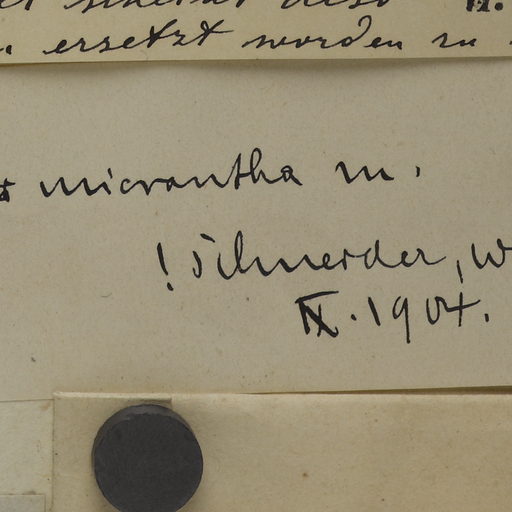 ersetzt worden zu
micrantha m.
! Schneider, W
IX. 1904.